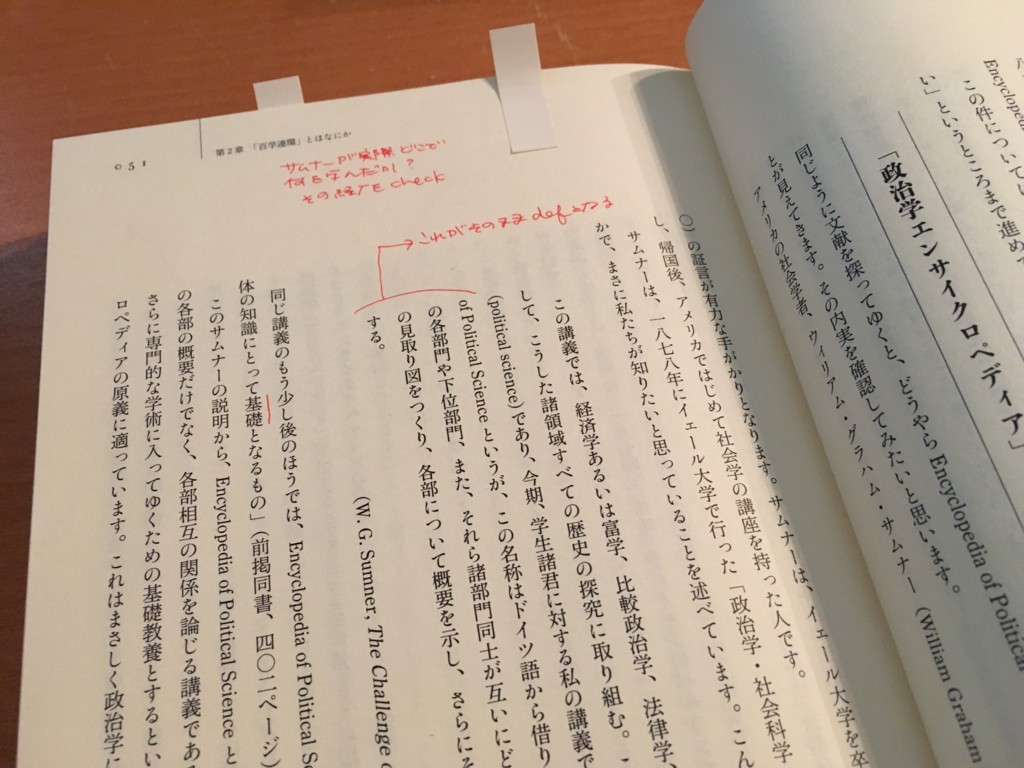 Encyclopedia
この件につい
い」というところまで進め
「政治学エンサイクロペディア」
同じように文献を探ってゆくと、どうやら Encyclopedia of Political
とが見えてきます。その内実を確認してみたいと思います。
アメリカの社会学者、ウィリアム・グラハム・サムナー（William Graham
〇）の証言が有力な手がかりとなります。サムナーは、イェール大学を卒
し、帰国後、アメリカではじめて社会学の講座を持った人です。
サムナーは、一八七八年にイェール大学で行った「政治学・社会科学
かで、まさに私たちが知りたいと思っていることを述べています。こん
この講義では、経済学あるいは富学、比較政治学、法律学、
(political science)であり、今期、学生諸君に対する私の講義で
して、こうした諸領域すべての歴史の探究に取り組む。
of Political Science というが、この名称はドイツ語から借り
の各部門や下位部門、また、それら諸部門同士が互いにど
の見取り図をつくり、各部について概要を示し、さらにそ
する。
(W. G. Sumner, The Challenge
同じ講義のもう少し後のほうでは、Encyclopedia of Political
体の知識にとって基礎となるもの」（前掲同書、四〇二ページ）
このサムナーの説明から、Encyclopedia of Political Science と
の各部の概要だけでなく、各部相互の関係を論じる講義であ
さらに専門的な学術に入ってゆくための基礎教養とするとい
ロペディアの原義に適っています。これはまさしく政治学に
第2章 「百学連環」とはなにか
051
サムナーが実際どこで
何を学んだか？
その経歴をcheck
これがそのままdefになる